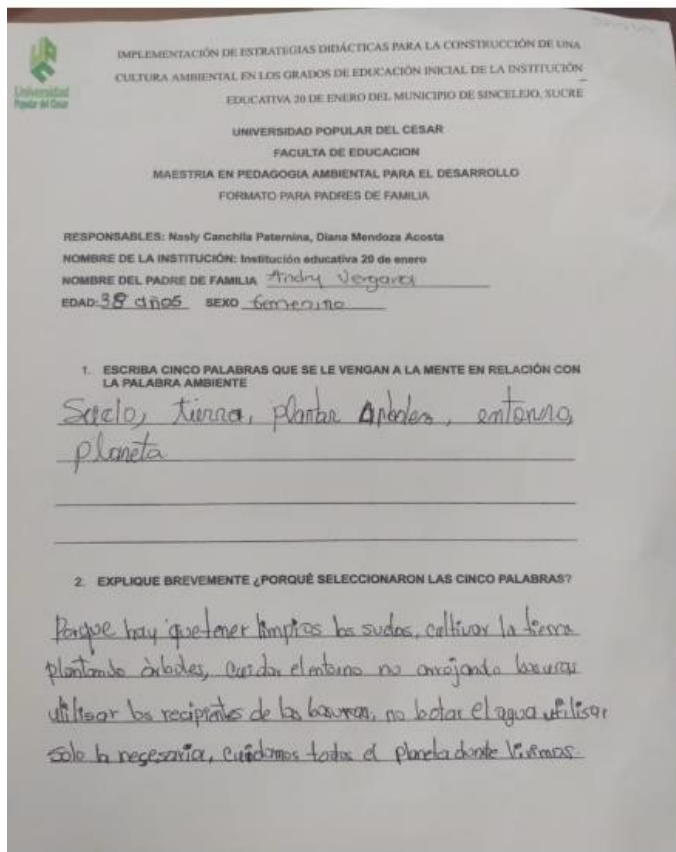 Universidad
Popular del Cesar
IMPLEMENTACIÓN DE ESTRATEGIAS DIDÁCTICAS PARA LA CONSTRUCCIÓN DE UNA
CULTURA AMBIENTAL EN LOS GRADOS DE EDUCACIÓN INICIAL DE LA INSTITUCIÓN
EDUCATIVA 20 DE ENERO DEL MUNICIPIO DE SINCELEJO, SUCRE
UNIVERSIDAD POPULAR DEL CESAR
FACULTA DE EDUCACION
MAESTRIA EN PEDAGOGIA AMBIENTAL PARA EL DESARROLLO
FORMATO PARA PADRES DE FAMILIA
RESPONSABLES: Nasly Canchila Paternina, Diana Mendoza Acosta
NOMBRE DE LA INSTITUCIÓN: Institución educativa 20 de enero
NOMBRE DEL PADRE DE FAMILIA Andry Vergara
EDAD: 38 años SEXO femenino
1. ESCRIBA CINCO PALABRAS QUE SE LE VENGAN A LA MENTE EN RELACIÓN CON
LA PALABRA AMBIENTE
Suelo, tierra, plantar Arboles, entorno,
planeta
2. EXPLIQUE BREVEMENTE ¿PORQUÉ SELECCIONARON LAS CINCO PALABRAS?
Porque hay que tener limpios los suelos, cultivar la tierra
plantando árboles, cuidar el entorno no arrojando basuras
utilisar los recipientes de las basuras, no botar el agua utilisar
solo la nesesaria, cuidamos todos el planeta donde vivimos.